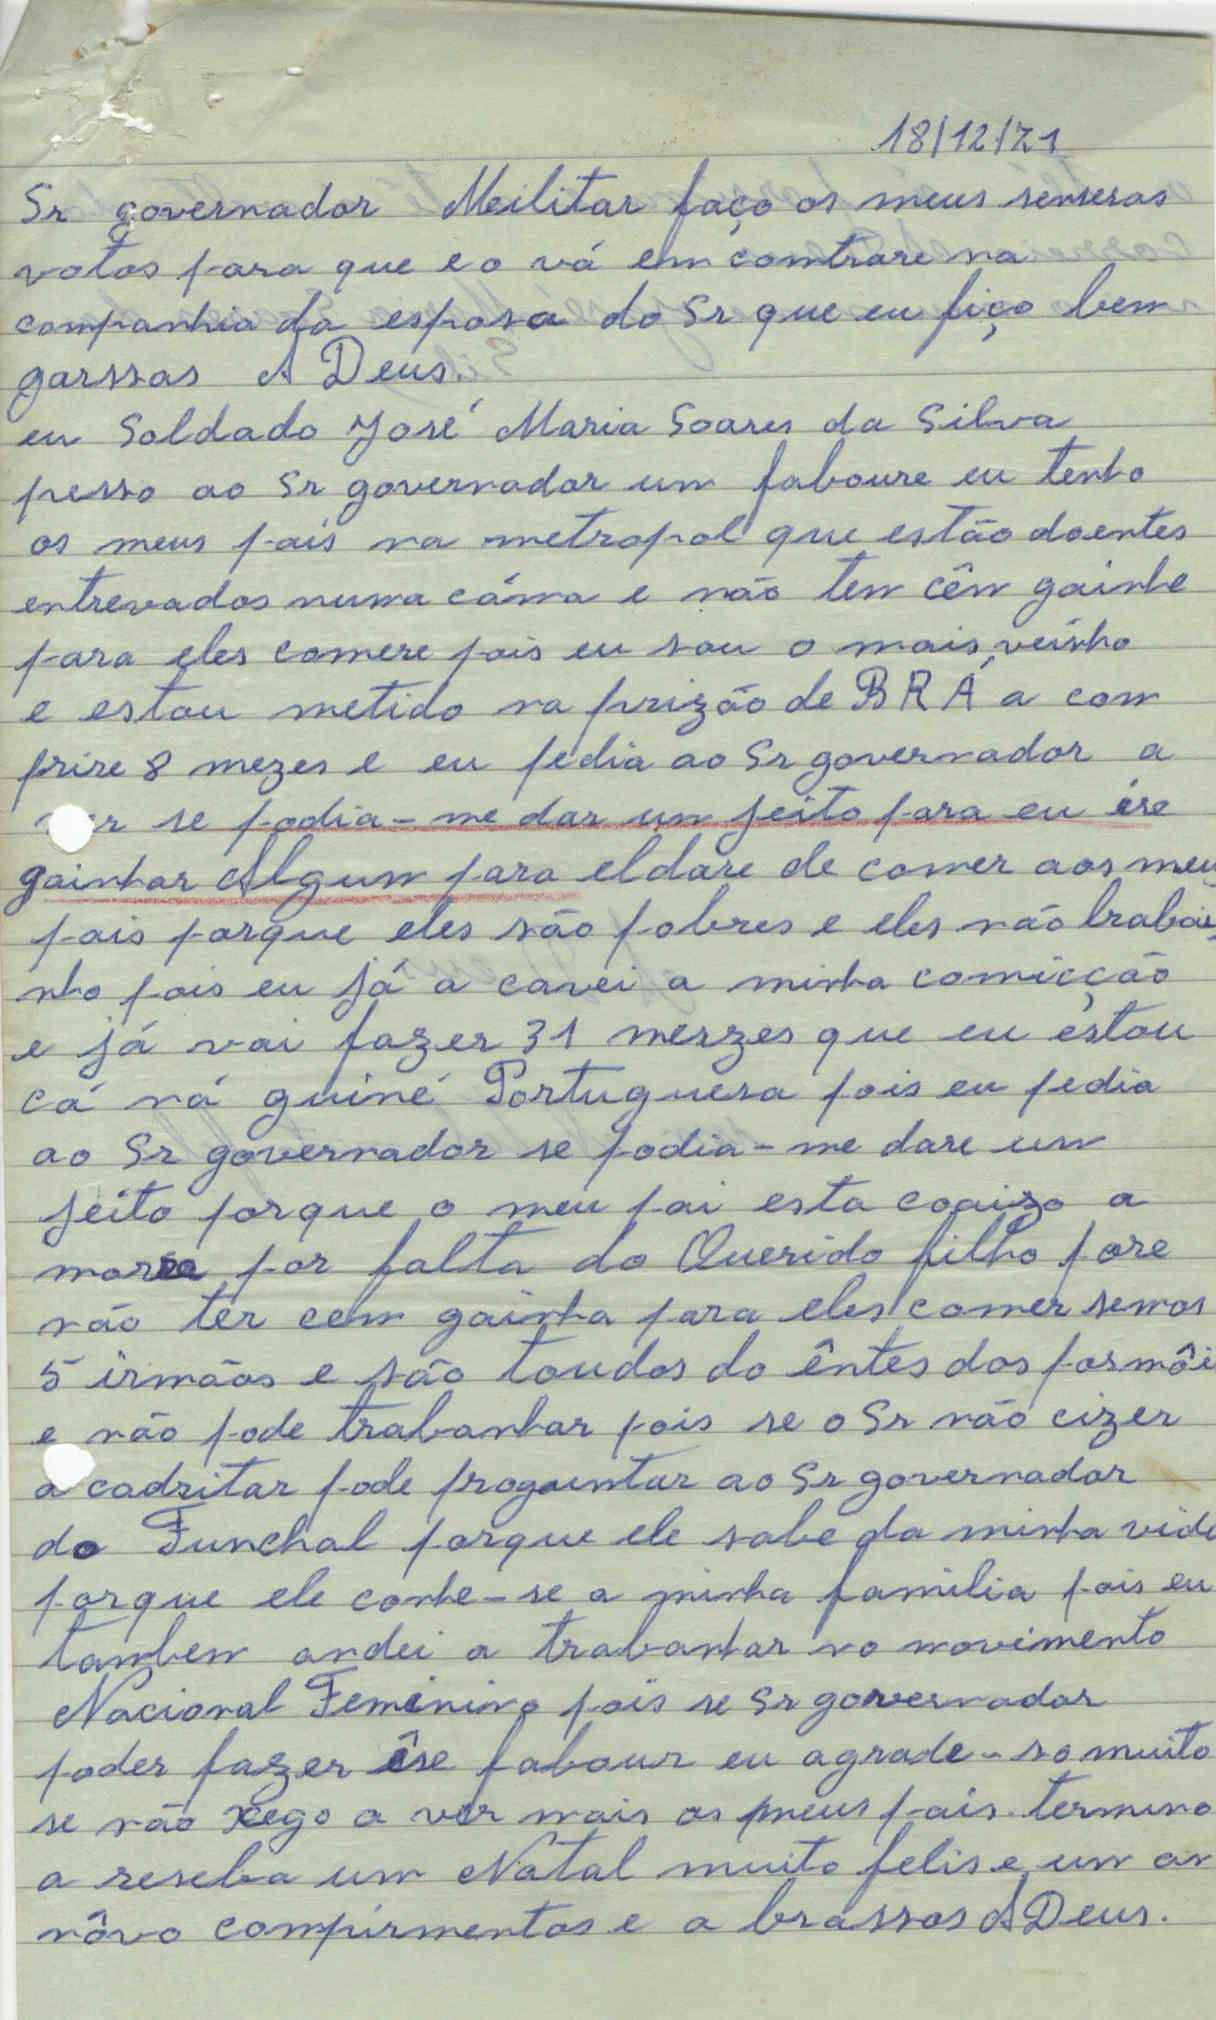 18/12/71
Sr governador Meilitar faço os meus senseras
votos para que e o vá em comtrare na
companhia da esposa do Sr que eu fiço bem
garssas A Deus.
eu Soldado José Maria Soares da Silva
pesso ao Sr governador um faboure eu tenho
os meus pais na metropol que estão doentes
entrevados numa cáma e não tem cêm gainhe
para eles comere pois eu sou o mais veinho
e estou metido na prizão de BRÁ a com
prire 8 mezes e eu pedia ao Sr governador a
ver se podia-me dar um jeito para eu ire
gainhar Algum para eldare de comer aos meus
pais porque eles são pobres e eles não trabai
nho pois eu já a cavei a minha comicção
e já vai fazer 31 merzes que eu estou
cá ná guiné Portuguesa pois eu pedia
ao Sr governador se podia-me dare um
jeito porque o meu pai esta coaizo a
por falta do Querido filho pore
não ter cem gainha para eles comer semos
5 irmãos e são toudos do êntes dos pormôi
e não pode trabanhar pois se o Sr não cizer
a cadritar pode proguntar ao Sr governador
do Funchal porque ele sabe da minha vida
porque ele conhe-se a minha familia pois eu
tambem andei a trabanhar no movimento
Nacional Feminino pois se Sr governador
poder fazer êse fabour eu agrade-so muito
se não xego a ver mais os meus pais. termino
a reseba um Natal muito felis e um an
nôvo compirmentos e a brassos A Deus.